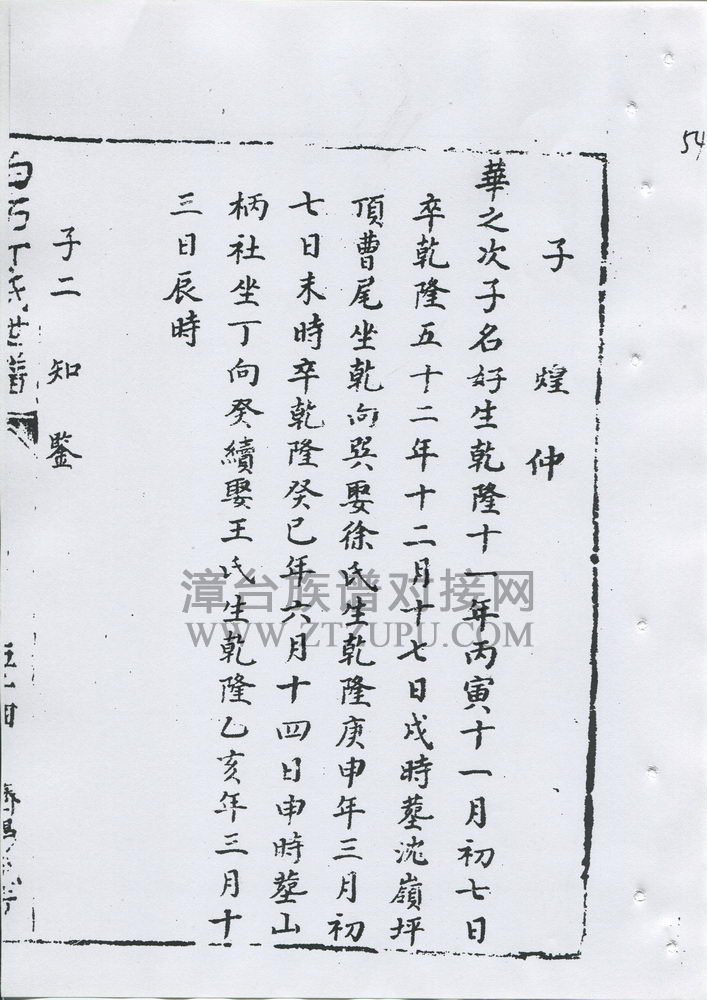 54
子 煌 仲
華之次子名好生乾隆十一年丙寅十一月初七日
卒乾隆五十二年十二月十七日戌時塟沈嶺坪
頂曹尾坐乾向巽娶徐氏生乾隆庚申年三月初
七日未時卒乾隆癸巳年六月十四日申時塟山
柄社坐丁向癸續娶王氏生乾隆乙亥年三月十
三日辰時
子二 知 鑒
白石丁氏世譜
漳台族谱对接网
WWW.ZTZUPU.COM